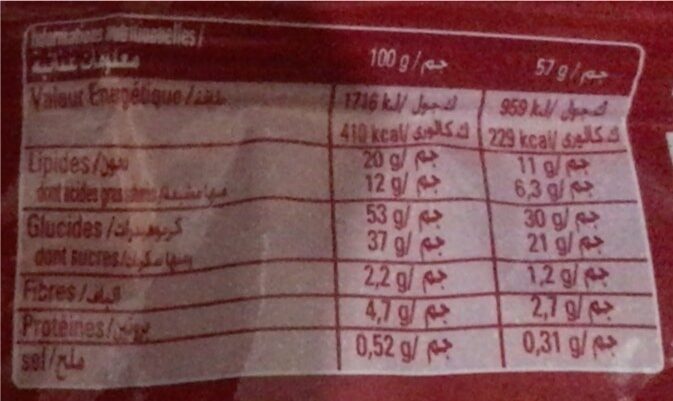 Informations nutritionnelles /
معلومات غذائية 100 g/جم 57 g/جم
Valeur Energétique /طاقة 1716 kJ/ ك جول 959 kJ/ ك جول
410 kcal/ ك كالوري 229 kcal/ ك كالوري
Lipides/دهون 20 g/ جم 11 g/ جم
dont acides gras 12 g/ جم 6,3 g/ جم
Glucides /كربوهيدرات 53 g/ جم 30 g/ جم
dont sucres/منها سكريات 37 g/ جم 21 g/ جم
Fibres /الياف 2,2 g/ جم 1,2 g/ جم
Protéines/بروتين 4,7 g/ جم 2,7 g/ جم
sel/ملح 0,52 g/ جم 0,31 g/ جم